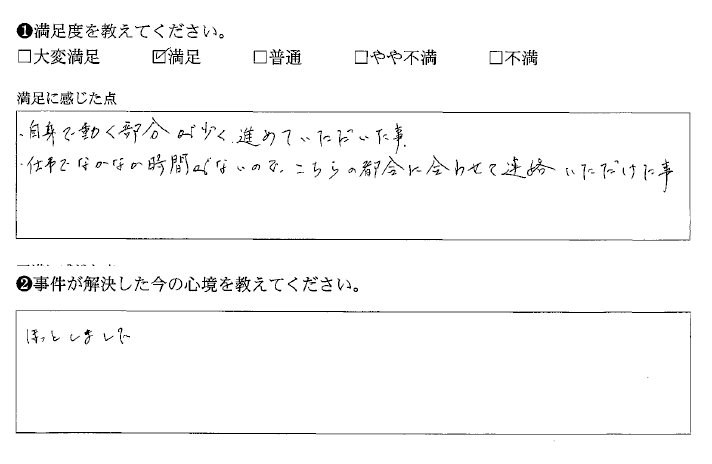 ❶満足度を教えてください。
□大変満足 ☑満足 □普通 □やや不満 □不満
満足に感じた点
・自身で動く部分が少く、進めていただいた事。
・仕事でなかなか時間がないので、こちらの都合に合わせて連絡いただけた事
❷事件が解決した今の心境を教えてください。
ほっとしました